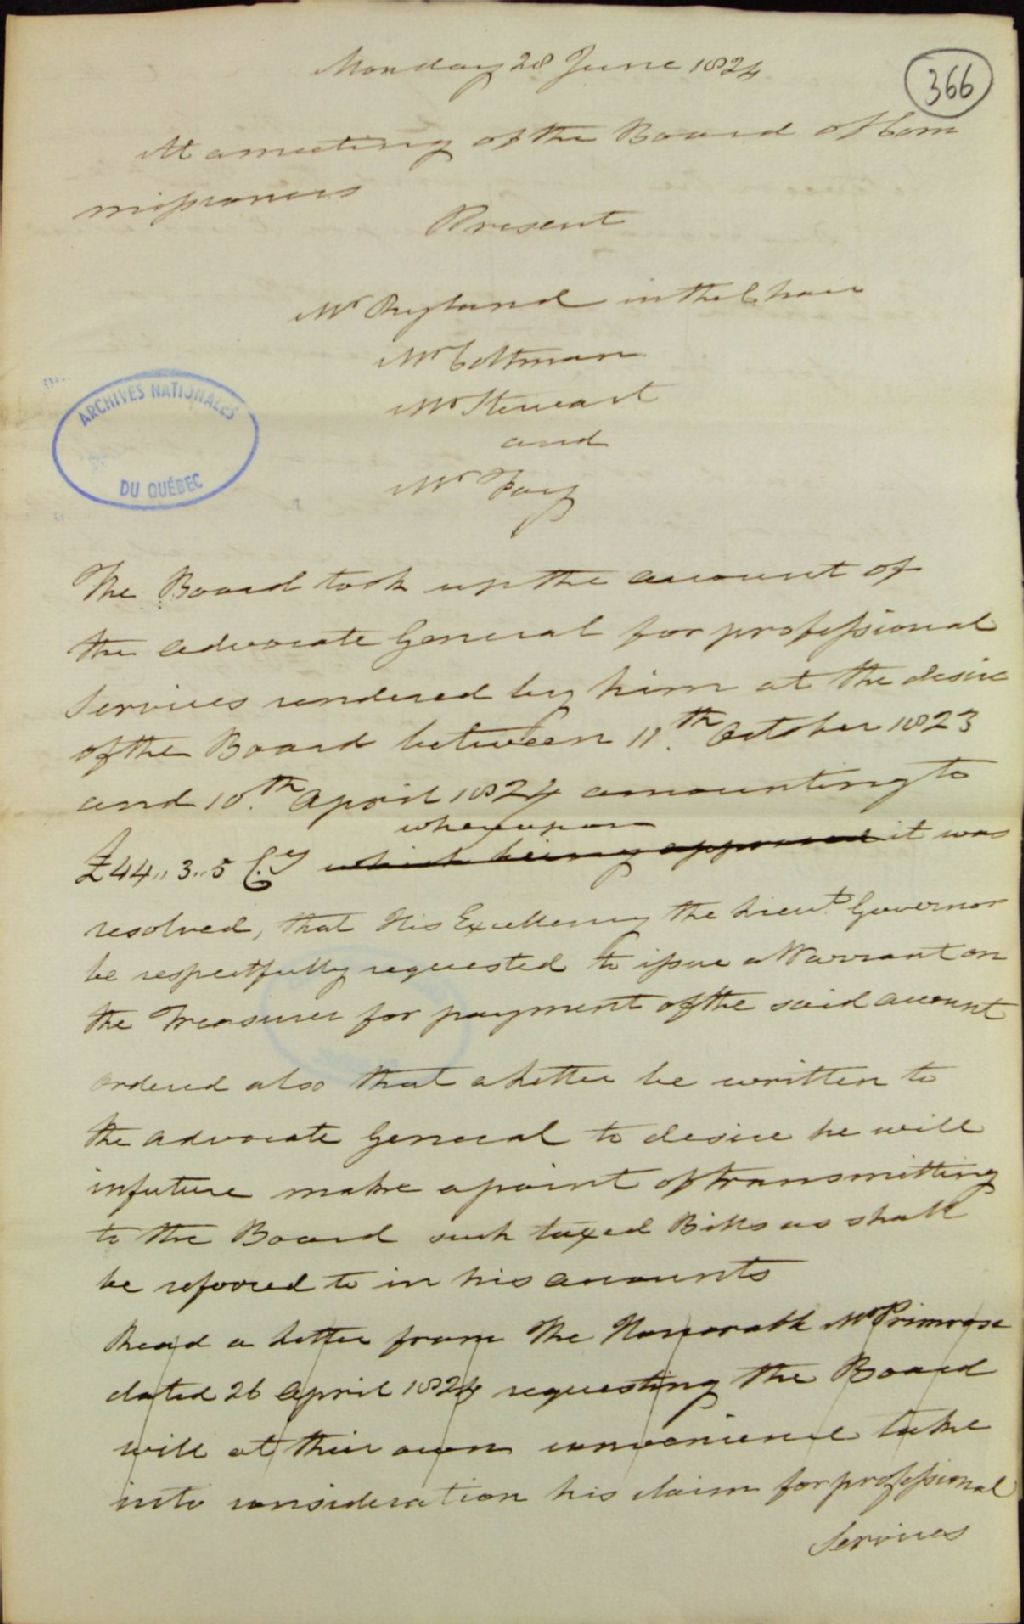 Monday 28 June 1824
366
At a meeting of the Board of Com
missioners
Present
Mr Ryland in the Chair
Mr Coltman
Mr Stewart
and
Mr Foy
ARCHIVES NATIONALES
DU QUÉBEC
The Board took up the account of
the Advocate General for professional
Services rendered by him at the desire
of the Board between 11.th October 1823
and 10.th April 1824 amounting to
whereupon
£44,, 3,, 5 C.y which being approved it was
resolved, that His Excellency the Lieut Governor
be respectfully requested to issue a Warrant on
the Treasurer for payment of the said account
Ordered also that a Letter be written to
the Advocate General to desire he will
in future make a point of transmitting
to the Board such taxed Bills as shall
be referred to in his accounts
Read a Letter from The Honorable Mr Primrose
dated 26 April 1824 requesting the Board
will at their own convenience take
into consideration his claim for professional
Services